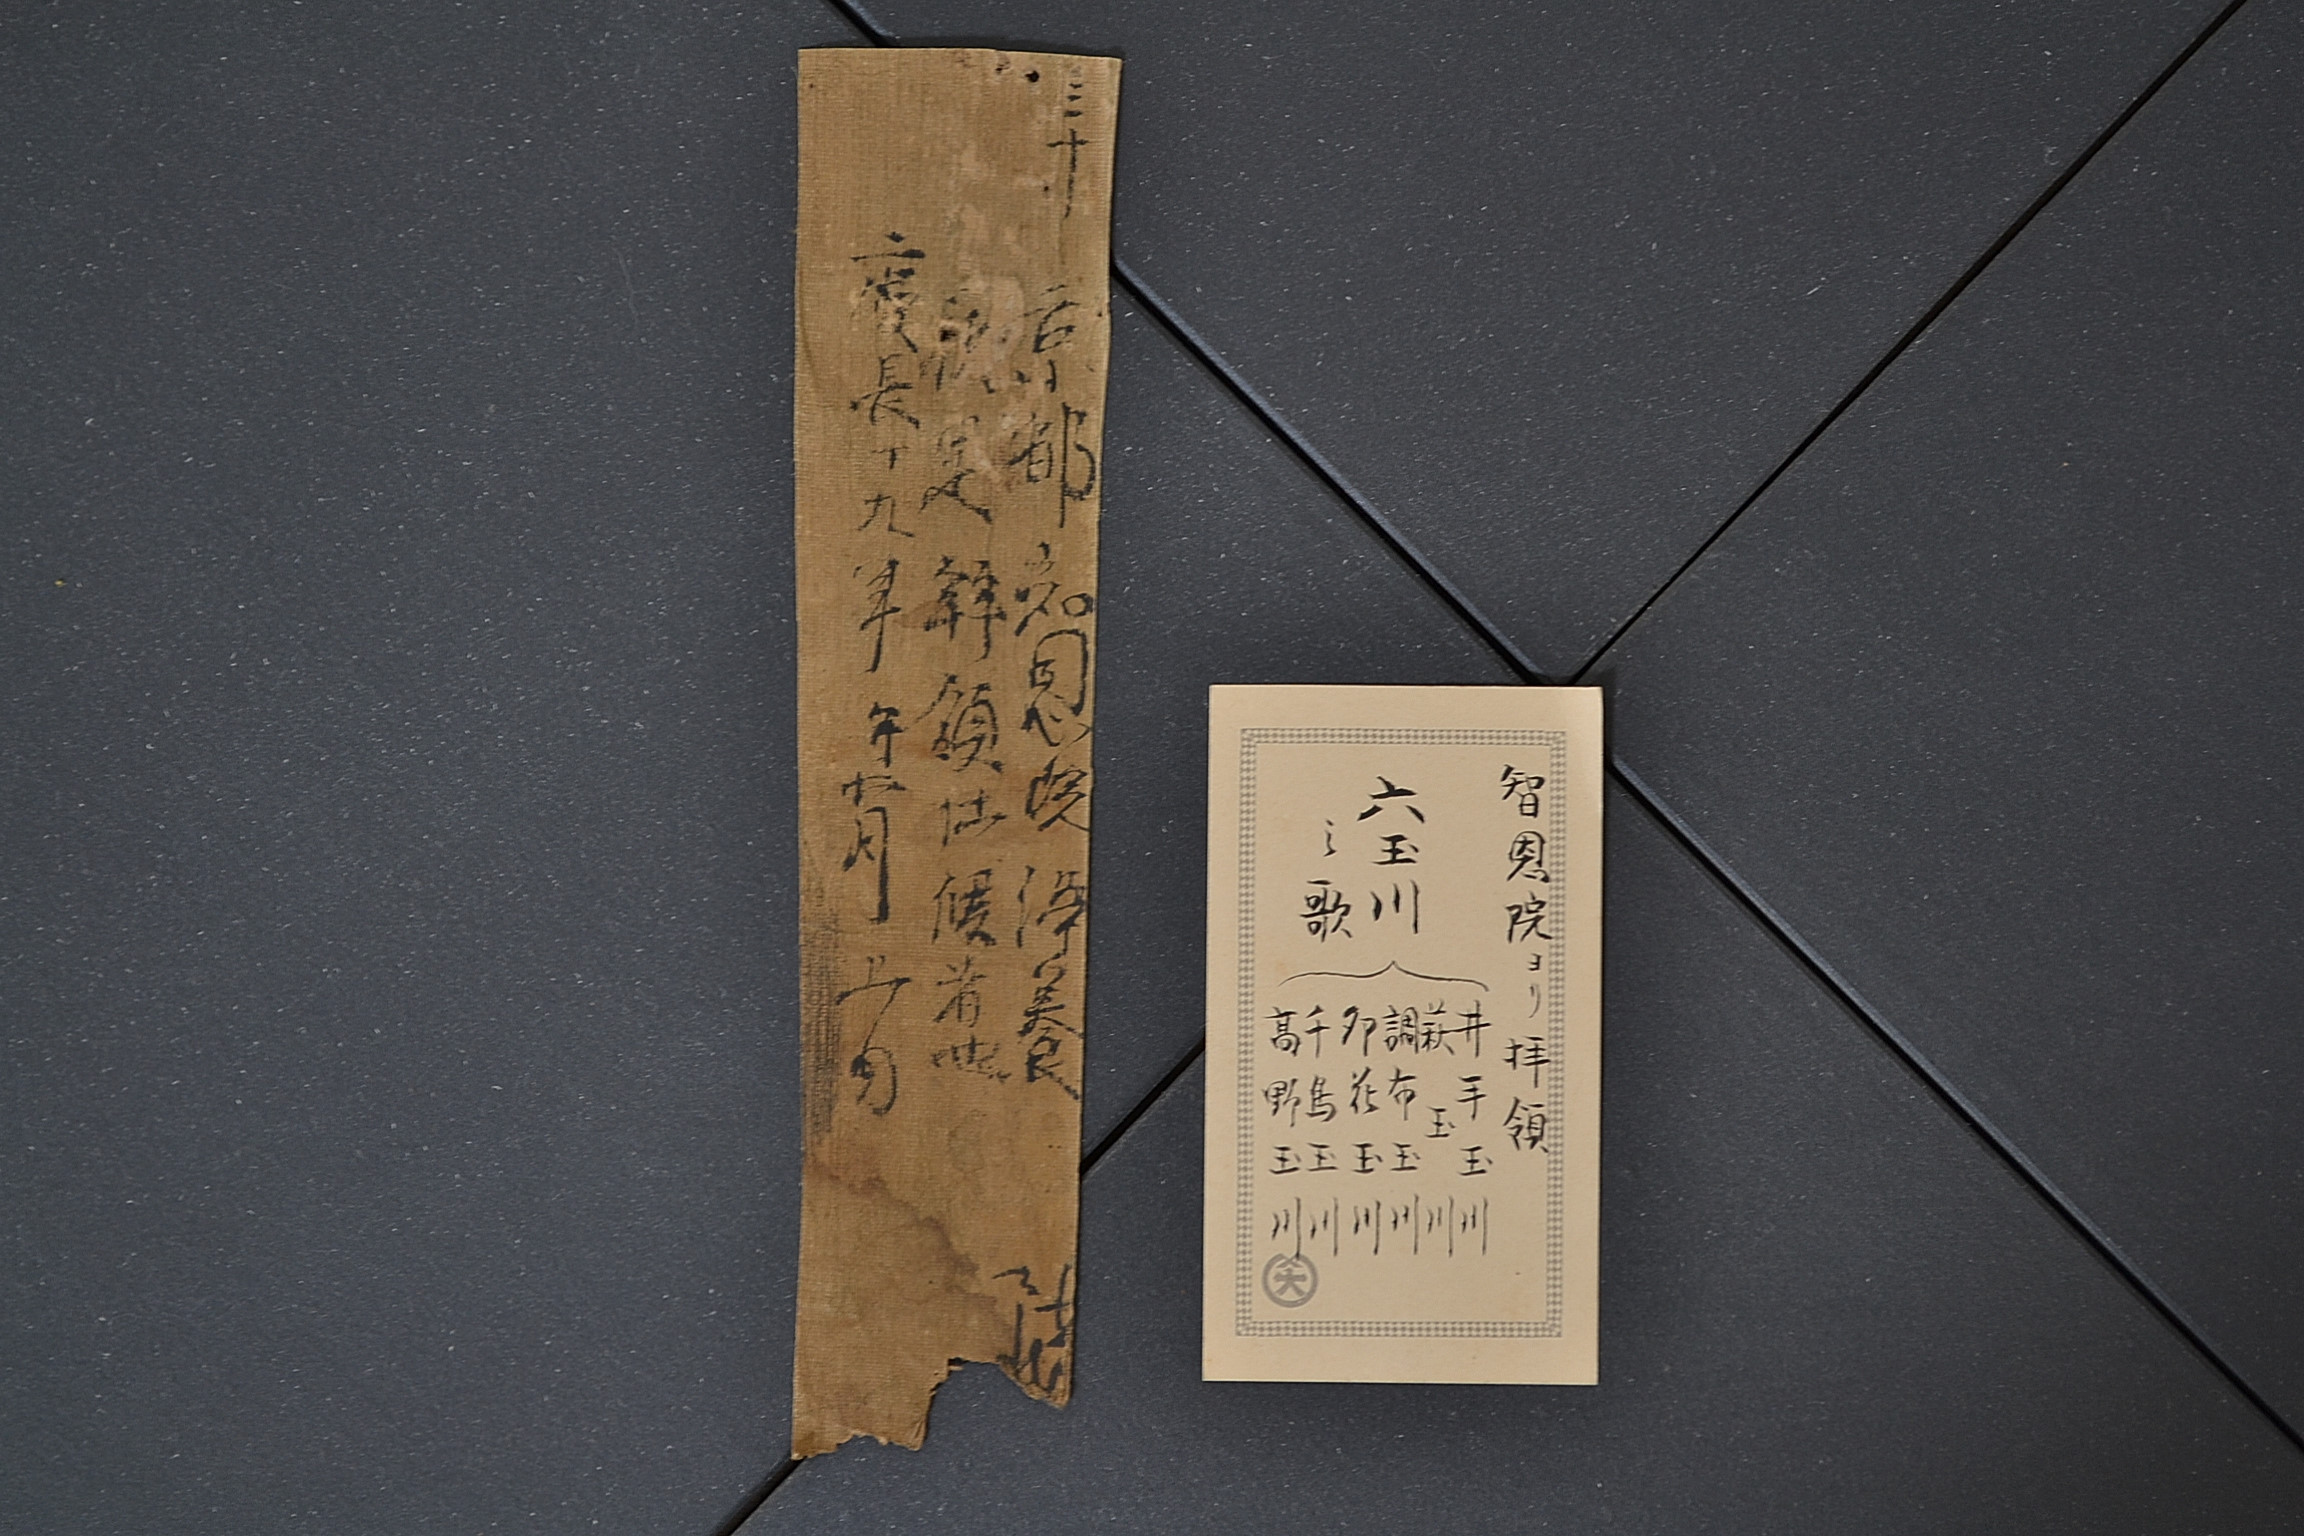 三十
京都知恩院浄養
是拝領仕候者也
慶長十九年午十月廿日
智恩院ヨリ拝領
六玉川
之歌
井手玉川
萩玉川
調布玉川
卯花玉川
千鳥玉川
高野玉川
大